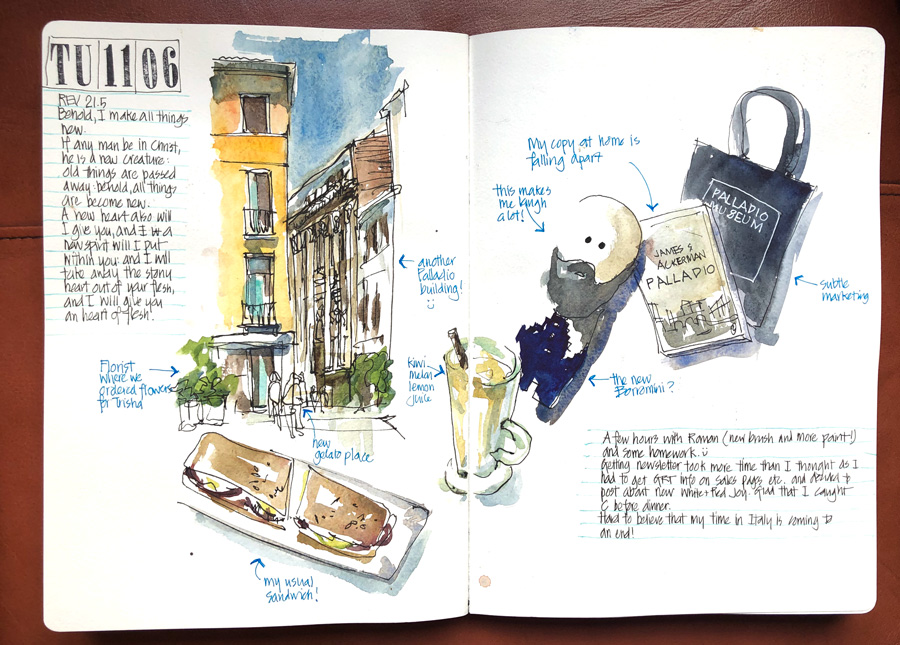 TU 11 06
REV 21.5
Behold, I make all things
new.
If any man be in Christ,
he is a new creature:
old things are passed
away: behold, all things
are become new.
A new heart also will
I give you, and a
new spirit will I put
within you: and I will
take away the stony
heart out of your flesh,
and I will give you
an heart of flesh.
Florist
where we
ordered flowers
for Trisha
another
Palladio
building!
new
gelato place
my usual
sandwich!
kiwi
melon
lemon
juice
My copy at home is
falling apart
this makes
me laugh
a lot!
JAMES S
ACKERMAN
PALLADIO
PALLADIO
MUSEUM
subtle
marketing
the new
Borromini?
A few hours with Roman (new brush and more paint!)
and some homework.
Getting newsletter took more time than I thought as I
had to get GST info on sales pages etc. and decided to
post about new White & Red Joy. Glad that I caught
C before dinner.
Hard to believe that my time in Italy is coming to
an end!